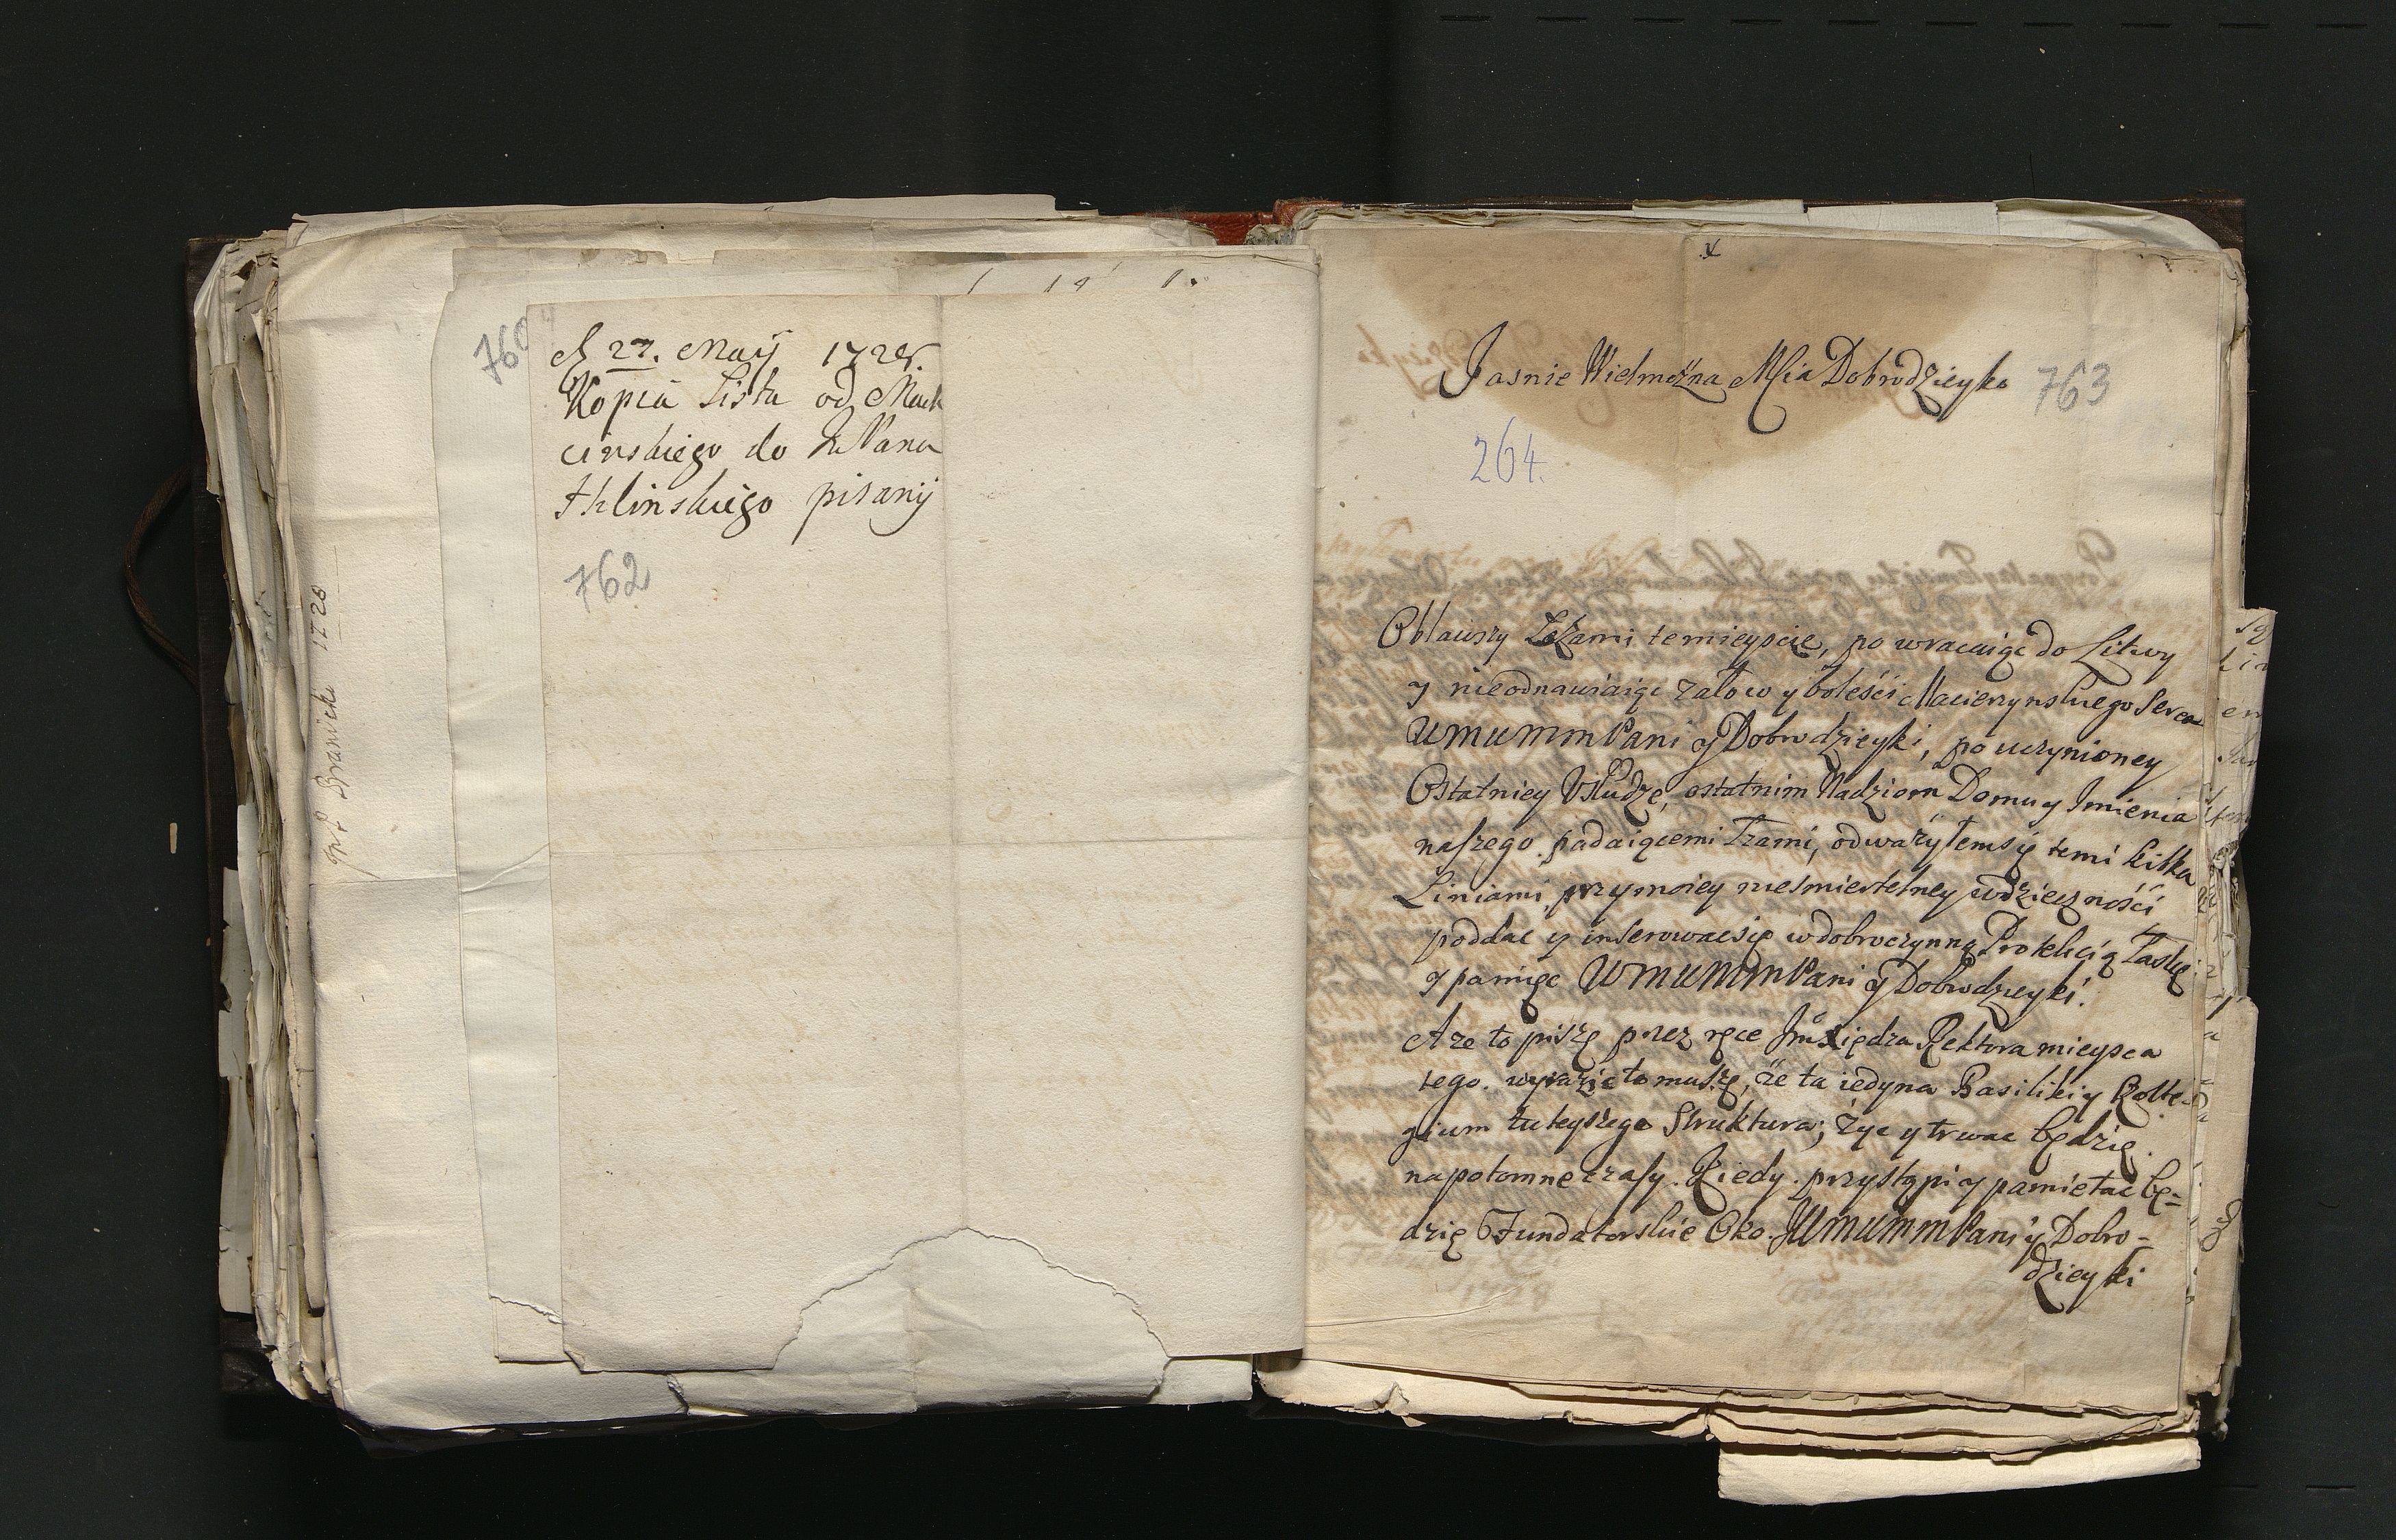 760
27. Maij 1728.
Kopia Listu od Mark
cinskiego do
skiego pisanij
762
Branicki 1728
Jasnie Wielmożna Mſcia Dobrodzieyko
763
264.
Oblawszy Łzami te mieysce, powracaiąc do Litwy
y nieodnawiaiąc zalow y boleści Macierzynskiego Serca
WMWMMPani y Dobrodzieyki, po uczynioney
Ostatniey Usłudze, ostatnim Nadziom Domu y Imienia
naſzego padaiącemi Łzami, odważyłemsię temi kilka
Liniami, przy moiey niesmiertelney wdzięczności
poddac y inserowacsię w dobroczynną Protekcią Łaskę
y pamięc WMWMMPani y Dobrodzieyki.
A ze to piszę przez ręce Xiędza Rektora mieysca
tego. wyrazic to muszę, że ta iedyna Basiliki y Kolle-
gium tuteyszego Struktura; życ y trwac będzie.
na potomne czaſy. Kiedy przystąpi y pamietac bę=
dzię Fundatorskie Oko. JWMWMMPani y Dobro-
dzieyki